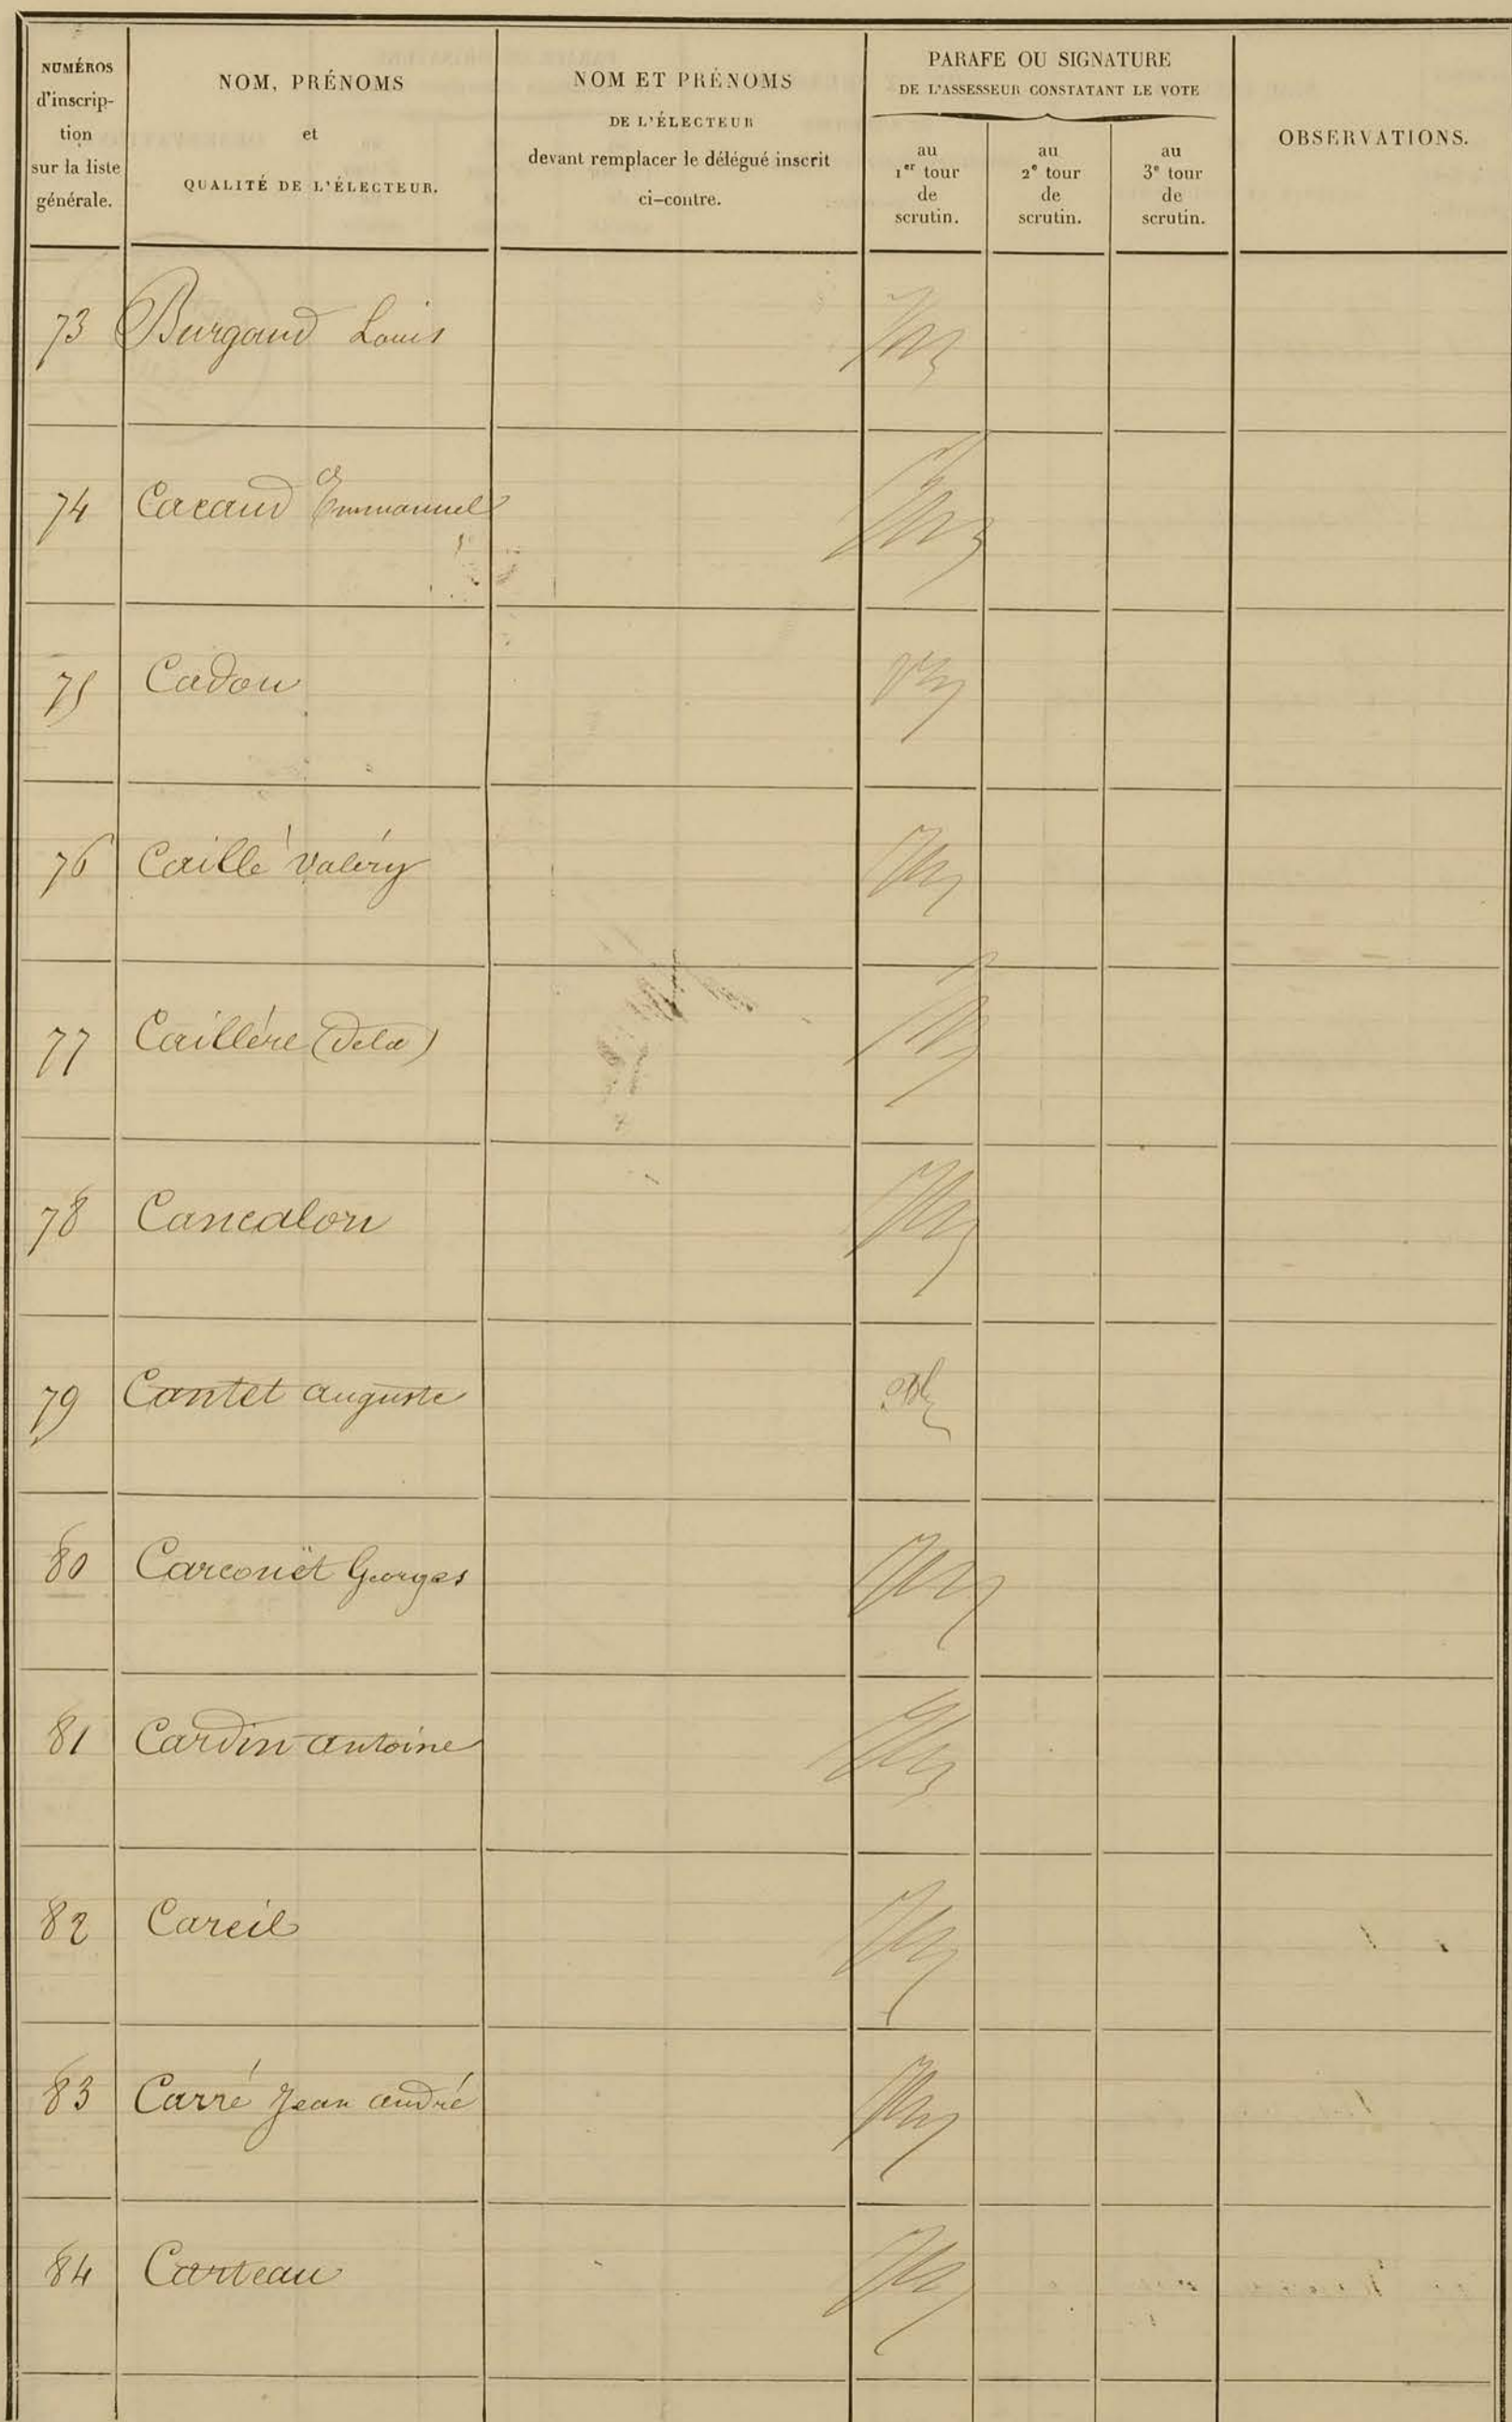 NUMÉROS
d'inscrip-
tion
sur la liste
générale.
NOM, PRÉNOMS
et
QUALITÉ DE L'ÉLECTEUR.
NOM ET PRÉNOMS
DE L'ÉLECTEUR
devant remplacer le délégué inscrit
ci-contre.
PARAFE OU SIGNATURE
DE L'ASSESSEUR CONSTATANT LE VOTE
au
1er tour
de
scrutin.
au
2e tour
de
scrutin.
au
3e tour
de
scrutin.
OBSERVATIONS.
73 Burgaud Louis
74 Emmanuel
75 Cadou
76 Caillé Valéry
77 Caillére (de la)
78 Cancalon
79 Cantet auguste
80 Carcouët Georges
81 Cardin antoine
82 Careil
83 Carré Jean andré
84 Carteau